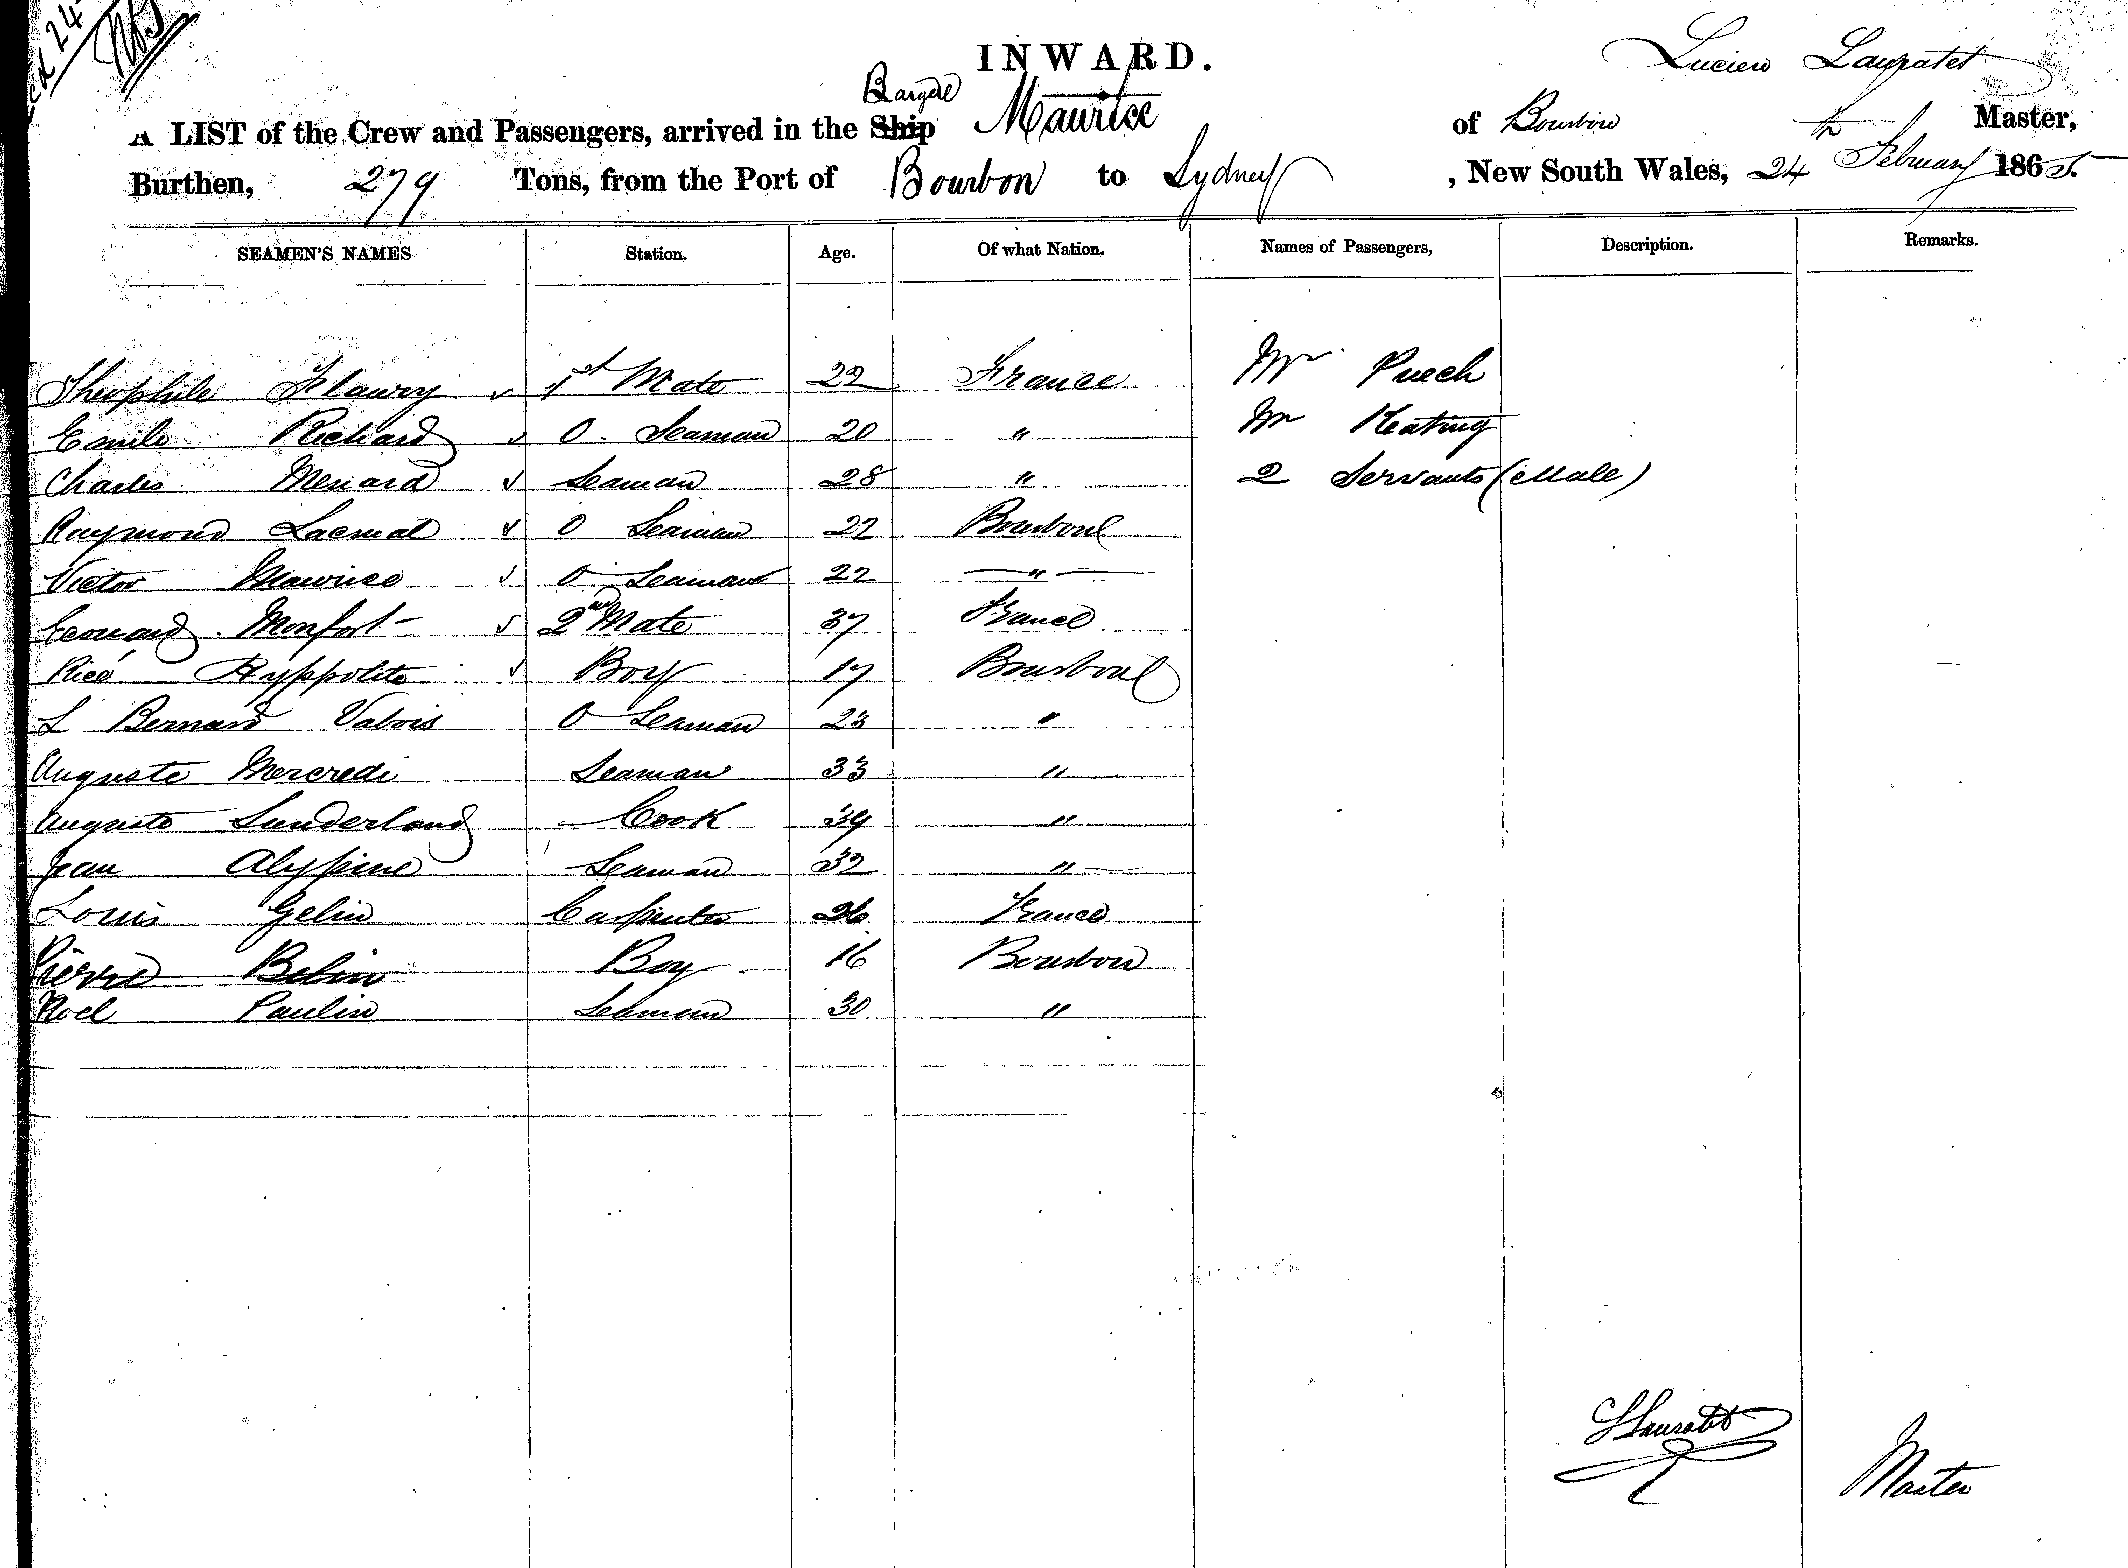 INWARD.
Lucien
Barque
A LIST of the Crew and Passengers, arrived in the Ship Maurice of Bourbon Master,
Burthen, 279 Tons, from the Port of Bourbon to Sydney, New South Wales, 24th February 1865.
SEAMEN'S NAMES Station. Age. Of what Nation. Names of Passengers, Description. Remarks.
Theophile Flaury 1st Mate 22 France Mr Puech
Emile Richard O. Seaman 20 " Mr Keating
Charles Menard Seaman 28 " 2 Servants (Male)
Raymond Lacmat O Seaman 22 Bourbon
Victor Maurice O Seaman 22 "
Leonard Monfort 2nd Mate 37 France
Ricé Hyppolite Boy 17 Bourbon
L Bernard Valois O Seaman 23 "
Auguste Mercredi Seaman 33 "
Auguste Sunderland Cook 39 "
Jean Seaman 32 "
Louis Gelin Carpenter 26 France
Pierre Belin Boy 16 Bourbon
Noel Paulin Seaman 30 "
Master